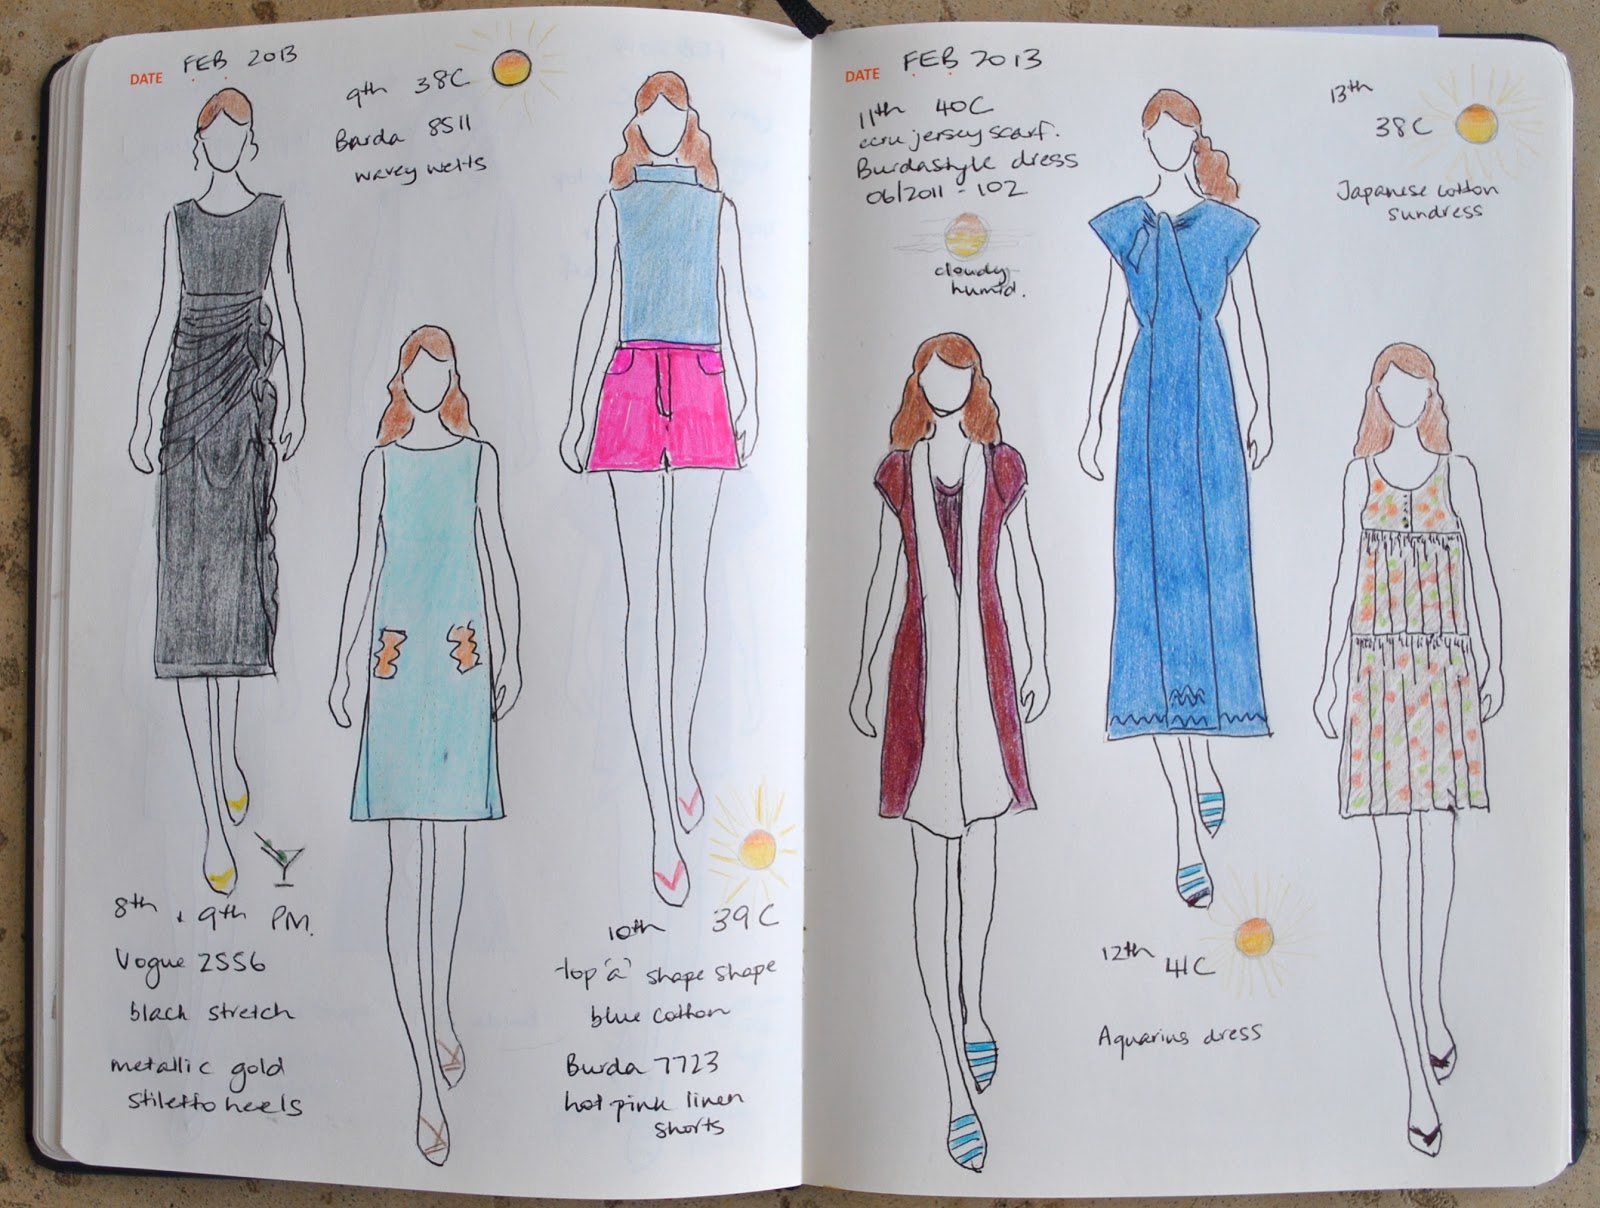 DATE FEB 2013
9th 38C
Burda 8511
wavey welts
8th + 9th PM.
Vogue 2556
black stretch
metallic gold
stiletto heels
10th 39C
top 'a' shape shape
blue cotton
Burda 7723
hot pink linen
shorts
DATE FEB 2013
11th 40C
ecru jersey scarf.
Burdastyle dress
06/2011 - 102
cloudy
humid.
13th
38C
Japanese cotton
sundress
12th 41C
Aquarius dress